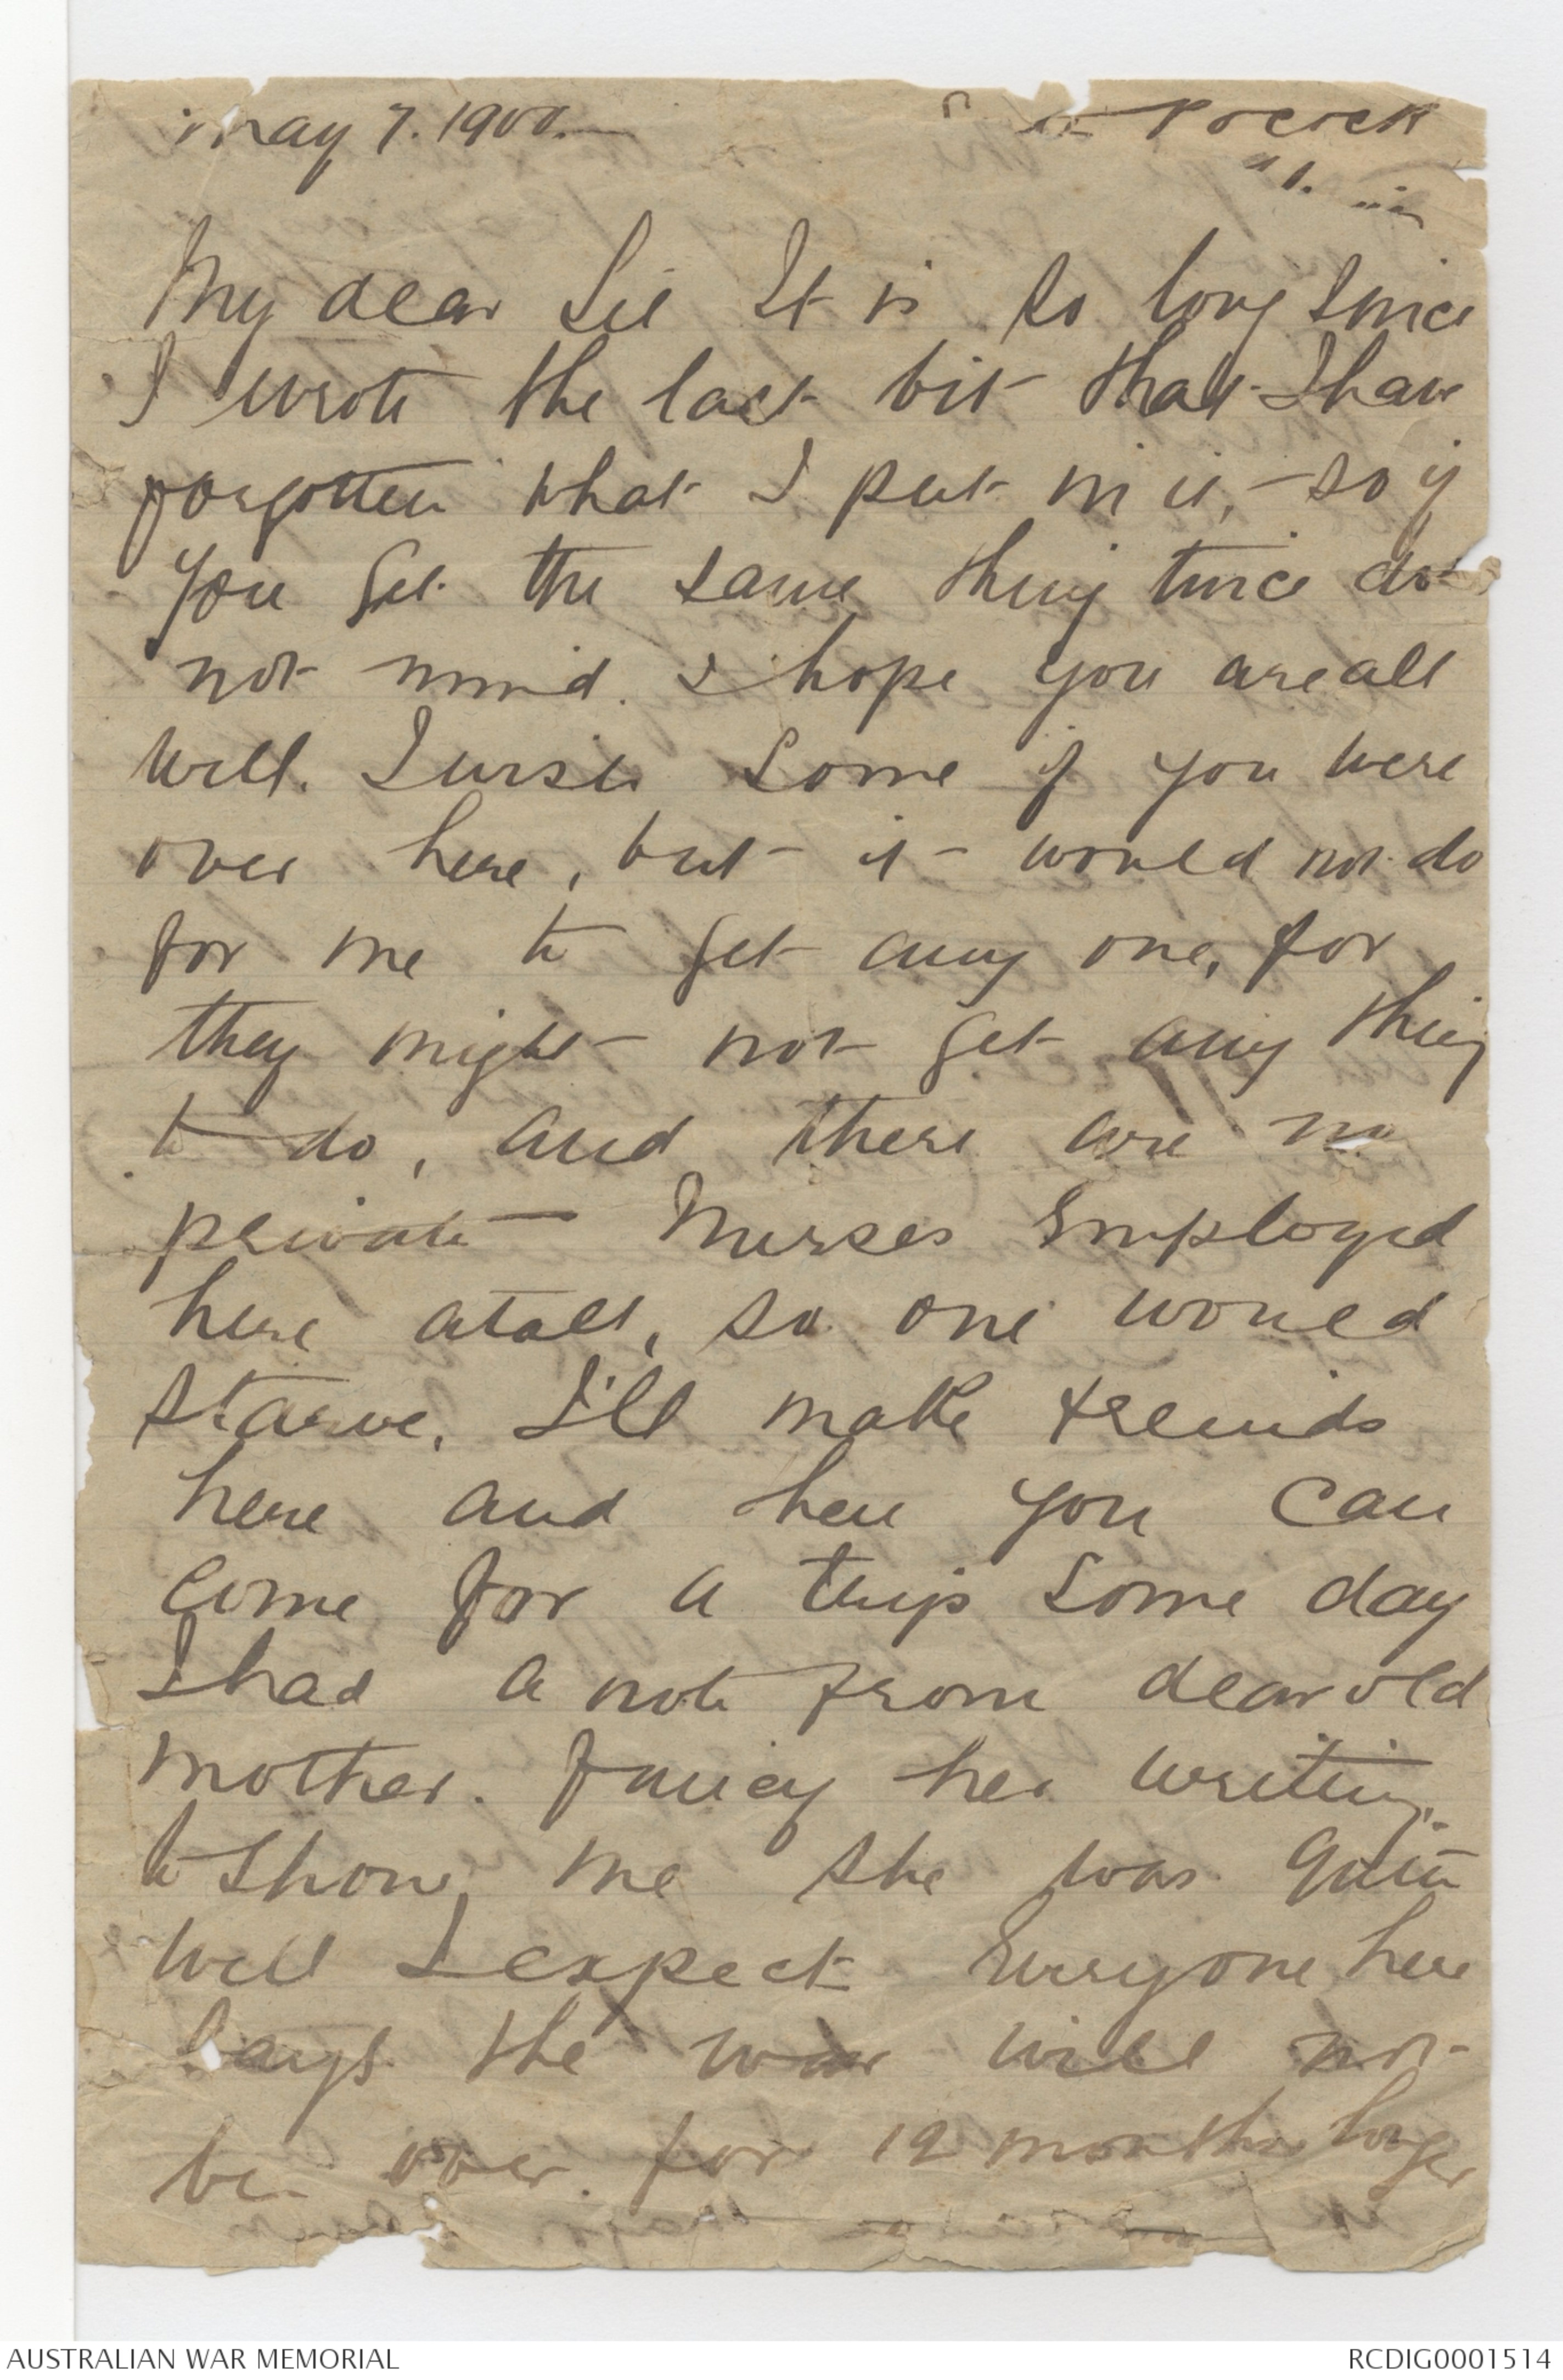 May 7. 1900. Pocock
My dear Sis It is so long since
I wrote the last bit that I have
forgotten what I put in it, - so if
you get the same thing twice do
not mind. I hope you are all
well. I wish some of you were
over here, but it would not do
for me to get any one, for
they might not get any thing
to do, and there are no
private Nurses Employed
here atall, so one would
starve, I'll make freinds
here and then you can
come for a trip some day
I had a note from dear old
mother. Fancy her writing.
to show me she was quite
well I expect Everyone here
says the war will not
be over for 12 months longer
AUSTRALIAN WAR MEMORIAL
RCDIG0001514